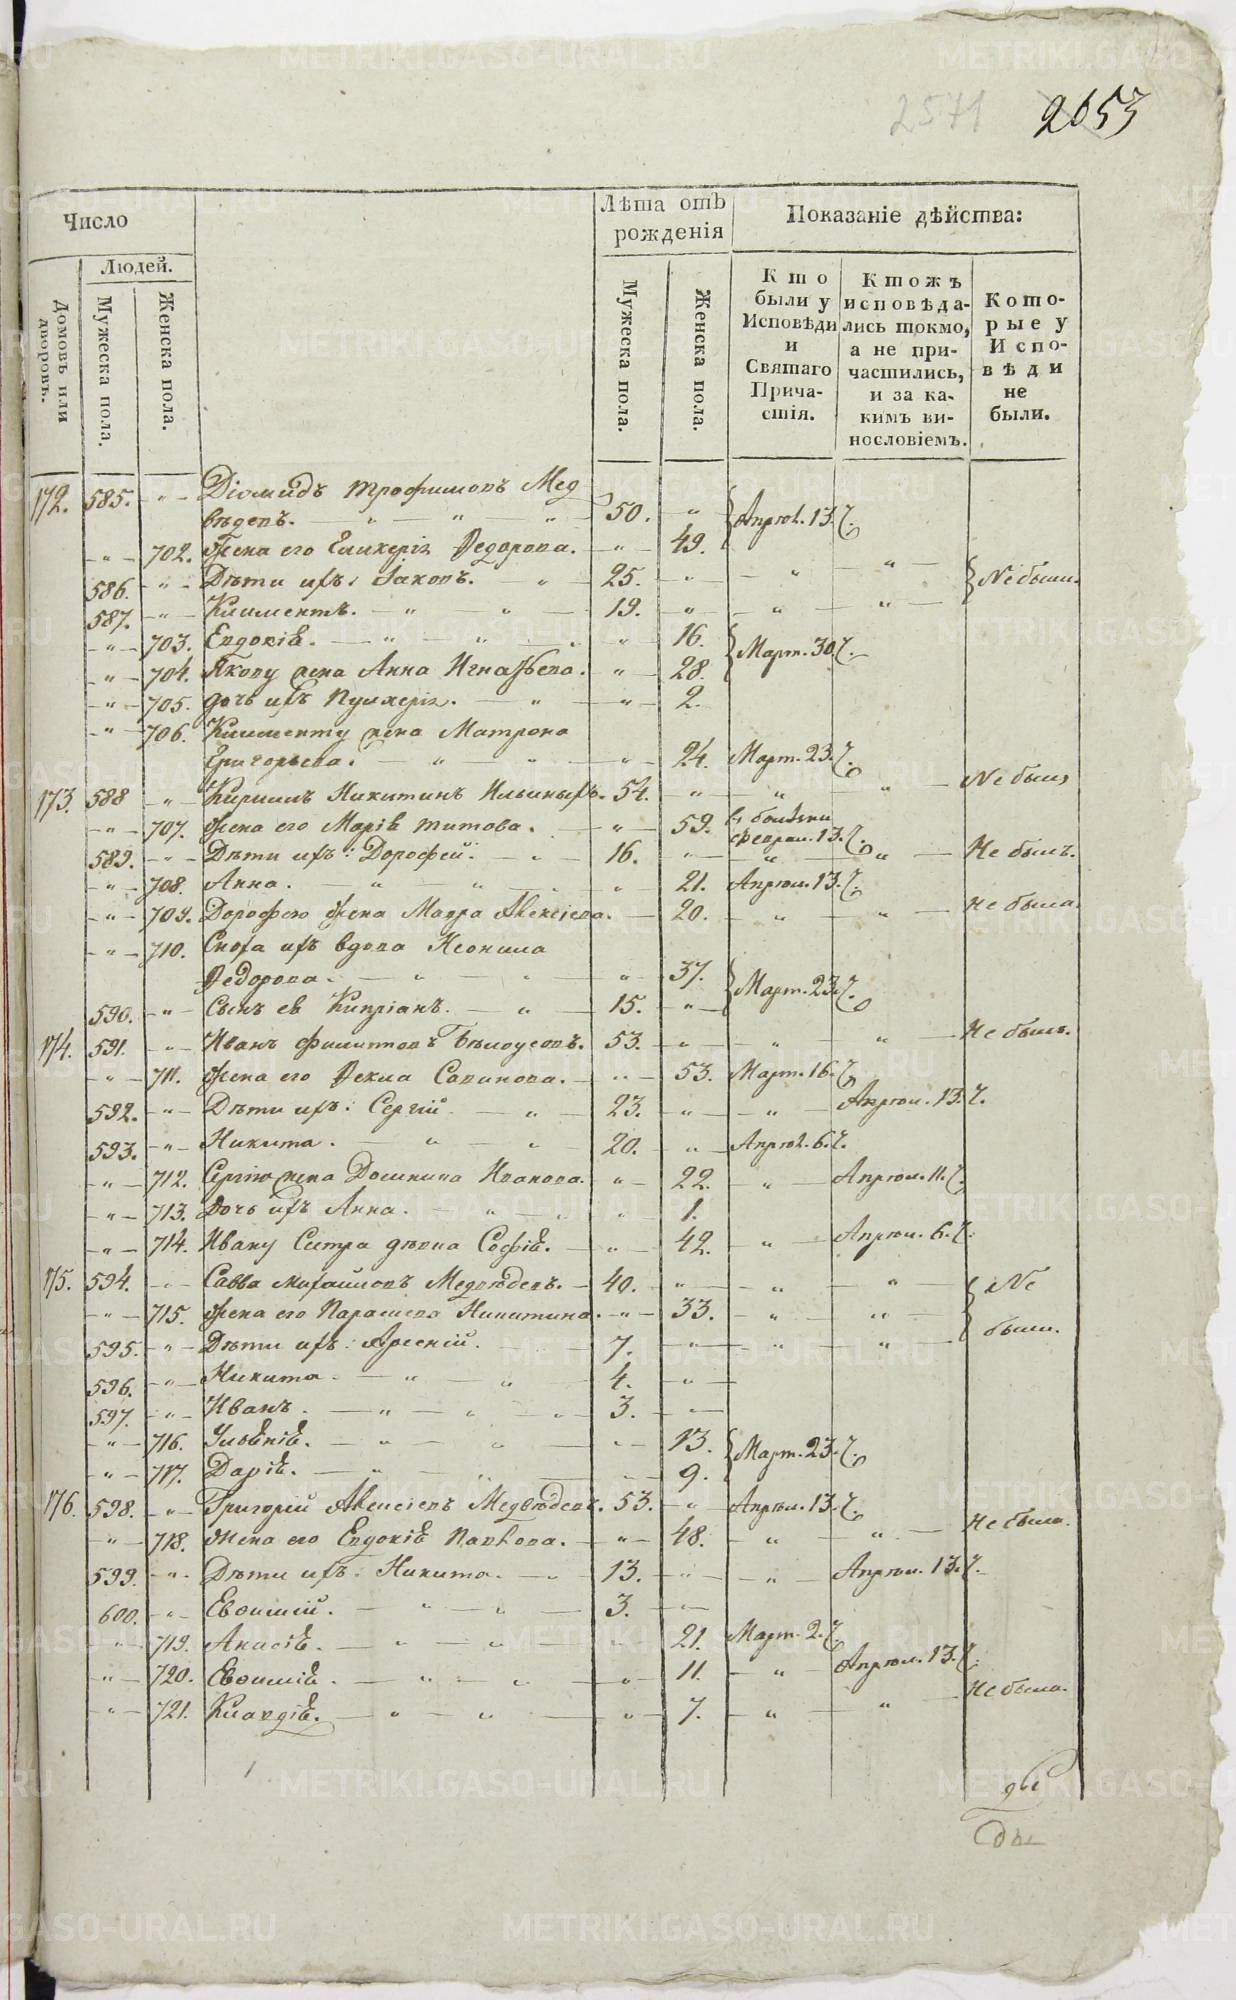 2571 2653
Число
Лѣта отъ рожденія
Показаніе дѣйства:
Людей.
Домовъ или дворовъ.
Мужеска пола.
Женска пола.
Мужеска пола.
Женска пола.
Кто были у Исповѣди и Святаго Причастія.
Ктожъ исповѣдались токмо, а не причастились, и за какимъ винословіемъ.
Которые у Исповѣди не были.
172. 585. Діомидъ Трофимовъ Мед
вѣдевъ. 50. Апрѣл. 13. ч.
702. Жена его Гликерія Ѳедорова. 49.
586. Дѣти ихъ: Іаковъ. 25. Не были.
587. Климентъ. 19.
703. Евдокія. 16. Март. 30. ч.
704. Якову жена Анна Игнатьева. 28.
705. дочь ихъ Пулхерія. 2.
706. Клименту жена Матрона
Григорьева. 24. Март. 23. ч.
173. 588 Кирилъ Никитинъ Ильиныхъ. 54. Не былъ
707. Жена его Марія Титова. 59. в болѣзни
Феврал. 13. ч.
589. Дѣти ихъ: Дорофей. 16. Не былъ.
708. Анна. 21. Апрѣл. 13. ч.
709. Дорофею Жена Мавра Алексіева. 20. Не была.
710. Сноха ихъ вдова Неонила
Ѳедорова. 37. Март. 23. ч.
590. Сынъ ея Кипріанъ. 15.
174. 591. Иванъ Филиповъ Бѣлоусовъ. 53. Не былъ.
711. Жена его Ѳекла Савинова. 53. Март. 16. ч.
592. Дѣти ихъ: Сергій. 23. Апрѣл. 13. ч.
593. Никита. 20. Апрѣл. 6. ч.
712. Сергію жена Домникіа Иванова. 22. Апрѣл. 11. ч.
713. Дочь ихъ Анна. 1.
714. Ивану Сестра дѣвка Софія. 42. Апрѣл. 6. ч.
175. 594. Савва Михайловъ Медвѣдевъ. 40. Не
715. Жена его Параскева Никитина. 33. были.
595. Дѣти ихъ: Арсеній. 7.
596. Никита. 4.
597. Иванъ. 3.
716. Ульянія. 13. Март. 23. ч.
717. Дарія. 9.
176. 598. Григорій Алексіевъ Медвѣдевъ. 53. Апрѣл. 13. ч.
718. Жена его Евдокія Павлова. 48. Не была.
599. Дѣти ихъ: Никита. 13. Апрѣл. 13. ч.
600. Евфимій. 3.
719. Анисія. 21. Март. 2. ч.
720. Евфимія. 11. Апрѣл. 13. ч.
721. Клавдія. 7. Не была.
METRIKI.GASO-URAL.RU